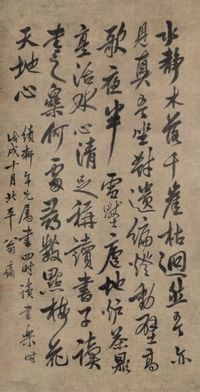 水静木落千崖枯迥然吾亦
見真吾坐對遺編燈動壁高
歌夜半雪壓廬地炉茶鼎
烹活水心清足稱讀書子讀
書之樂何處尋數點梅花
天地心
年兄属書四时讀書樂时
戊戌十月北平翁